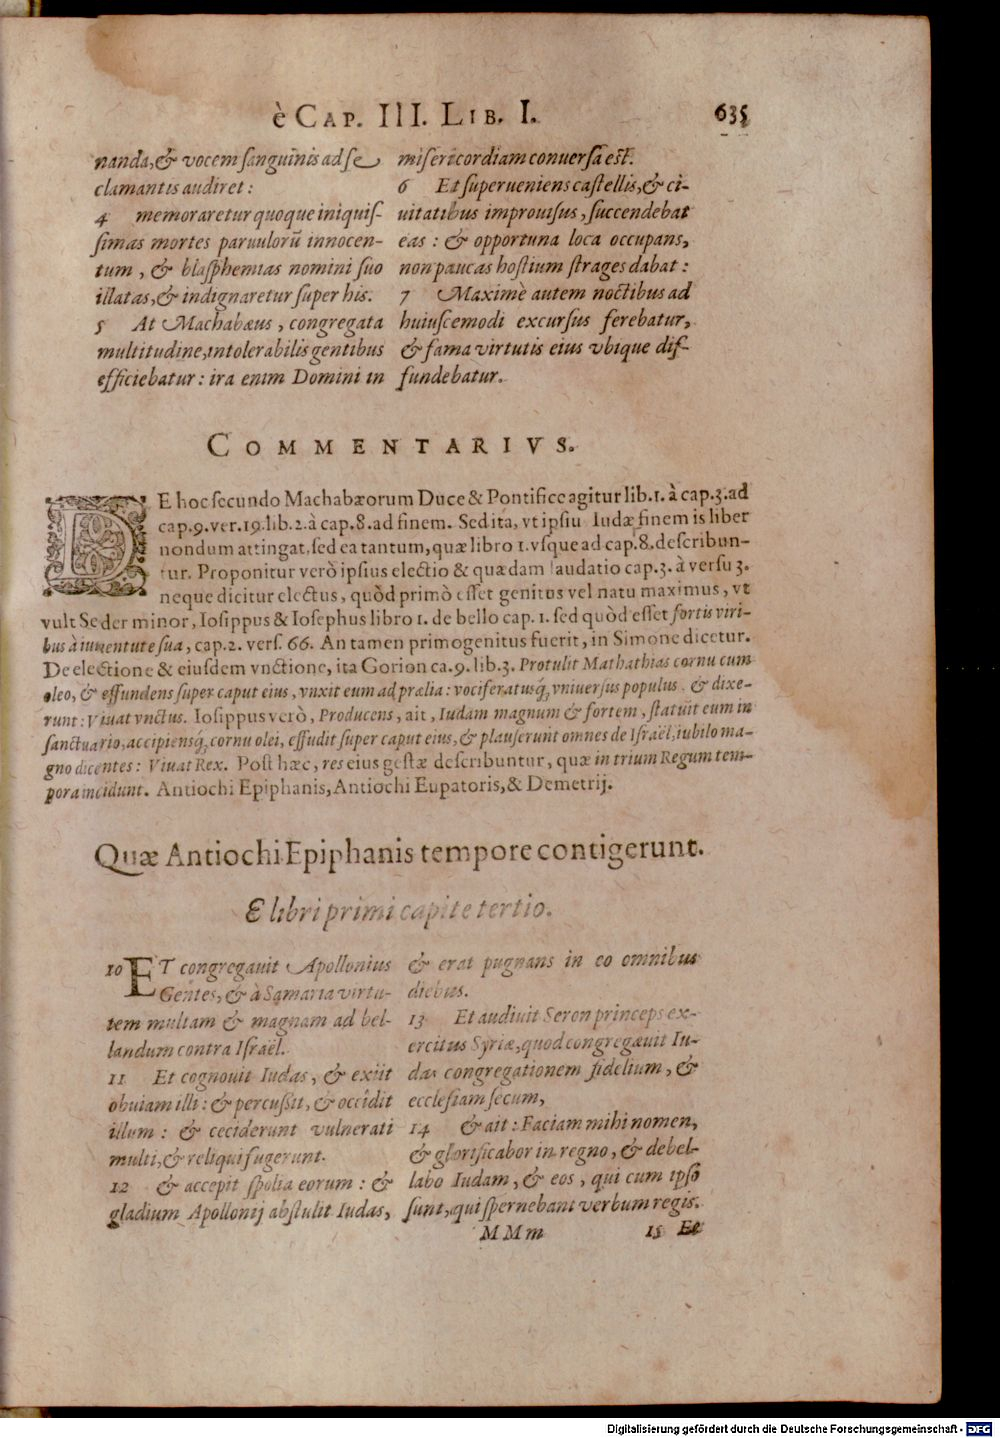 è CAP. III. LIB. I.
635
nanda, & vocem sanguinis ad se
clamantis audiret:
4 memoraretur quoque iniquis-
simas mortes paruulorū innocen-
tum, & blasphemias nomini suo
illatas, & indignaretur super his.
5 At Machabæus, congregata
multitudine, intolerabilis gentibus
efficiebatur: ira enim Domini in
misericordiam conuersa est.
6 Et superueniens castellis, & ci-
uitatibus improuisus, succendebat
eas: & opportuna loca occupans,
non paucas hostium strages dabat:
7 Maximè autem noctibus ad
huiuscemodi excursus ferebatur,
& fama virtutis eius vbique dif-
fundebatur.
COMMENTARIVS.
DE hoc secundo Machabæorum Duce & Pontifice agitur lib. 1. à cap. 3. ad
cap. 9. ver. 19. lib. 2. à cap. 8. ad finem. Sed ita, vt ipsiu Iudæ finem is liber
nondum attingat, sed ea tantum, quæ libro 1. vsque ad cap. 8. describun-
tur. Proponitur verò ipsius electio & quædam laudatio cap. 3. à versu 3.
neque dicitur electus, quòd primò esset genitus vel natu maximus, vt
vult Seder minor, Iosippus & Iosephus libro 1. de bello cap. 1. sed quòd esset fortis viri-
bus à iuuentute sua, cap. 2. vers. 66. An tamen primogenitus fuerit, in Simone dicetur.
De electione & eiusdem vnctione, ita Gorion ca. 9. lib. 3. Protulit Mathathias cornu cum
oleo, & effundens super caput eius, vnxit eum ad prælia: vociferatusq; vniuersus populus. & dixe-
runt: Viuat vnctus. Iosippus verò, Producens, ait, Iudam magnum & fortem, statuit eum in
sanctuario, accipiensq; cornu olei, effudit super caput eius, & plauserunt omnes de Israël, iubilo ma-
gno dicentes: Viuat Rex. Post hæc, res eius gestæ describuntur, quæ in trium Regum tem-
pora incidunt. Antiochi Epiphanis, Antiochi Eupatoris, & Demetrij.
Quæ Antiochi Epiphanis tempore contigerunt.
E libri primi capite tertio.
10 ET congregauit Apollonius
Gentes, & à Samaria virtu-
tem multam & magnam ad bel-
landum contra Israël.
11 Et cognouit Iudas, & exiit
obuiam illi: & percussit, & occidit
illum: & ceciderunt vulnerati
multi, & reliqui fugerunt.
12 & accepit spolia eorum: &
gladium Apollonij abstulit Iudas,
& erat pugnans in eo omnibus
diebus.
13 Et audiuit Seron princeps ex-
ercitus Syriæ, quod congregauit Iu-
das congregationem fidelium, &
ecclesiam secum,
14 & ait: Faciam mihi nomen,
& glorificabor in regno, & debel-
labo Iudam, & eos, qui cum ipso
sunt, qui spernebant verbum regis.
MMm
15 Et
Digitalisierung gefördert durch die Deutsche Forschungsgemeinschaft - DFG